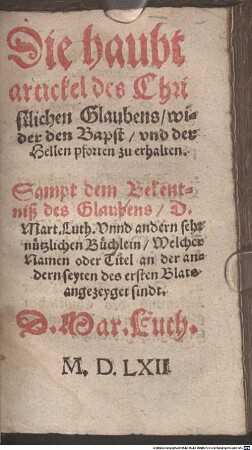 Die haubt
artickel des Chri
stlichen Glaubens/wi-
der den Bapst/vnd der
Hellen pforten zu erhalten.
Sampt dem Bekent-
niß des Glaubens/D.
Mart.Luth.Vnnd andern sehr
nützlichen Büchlein/Welcher
Namen oder Titel an der an-
dern seyten des ersten Blats
angezeyget sindt.
D.Mar.Luth.
M.D.LXII